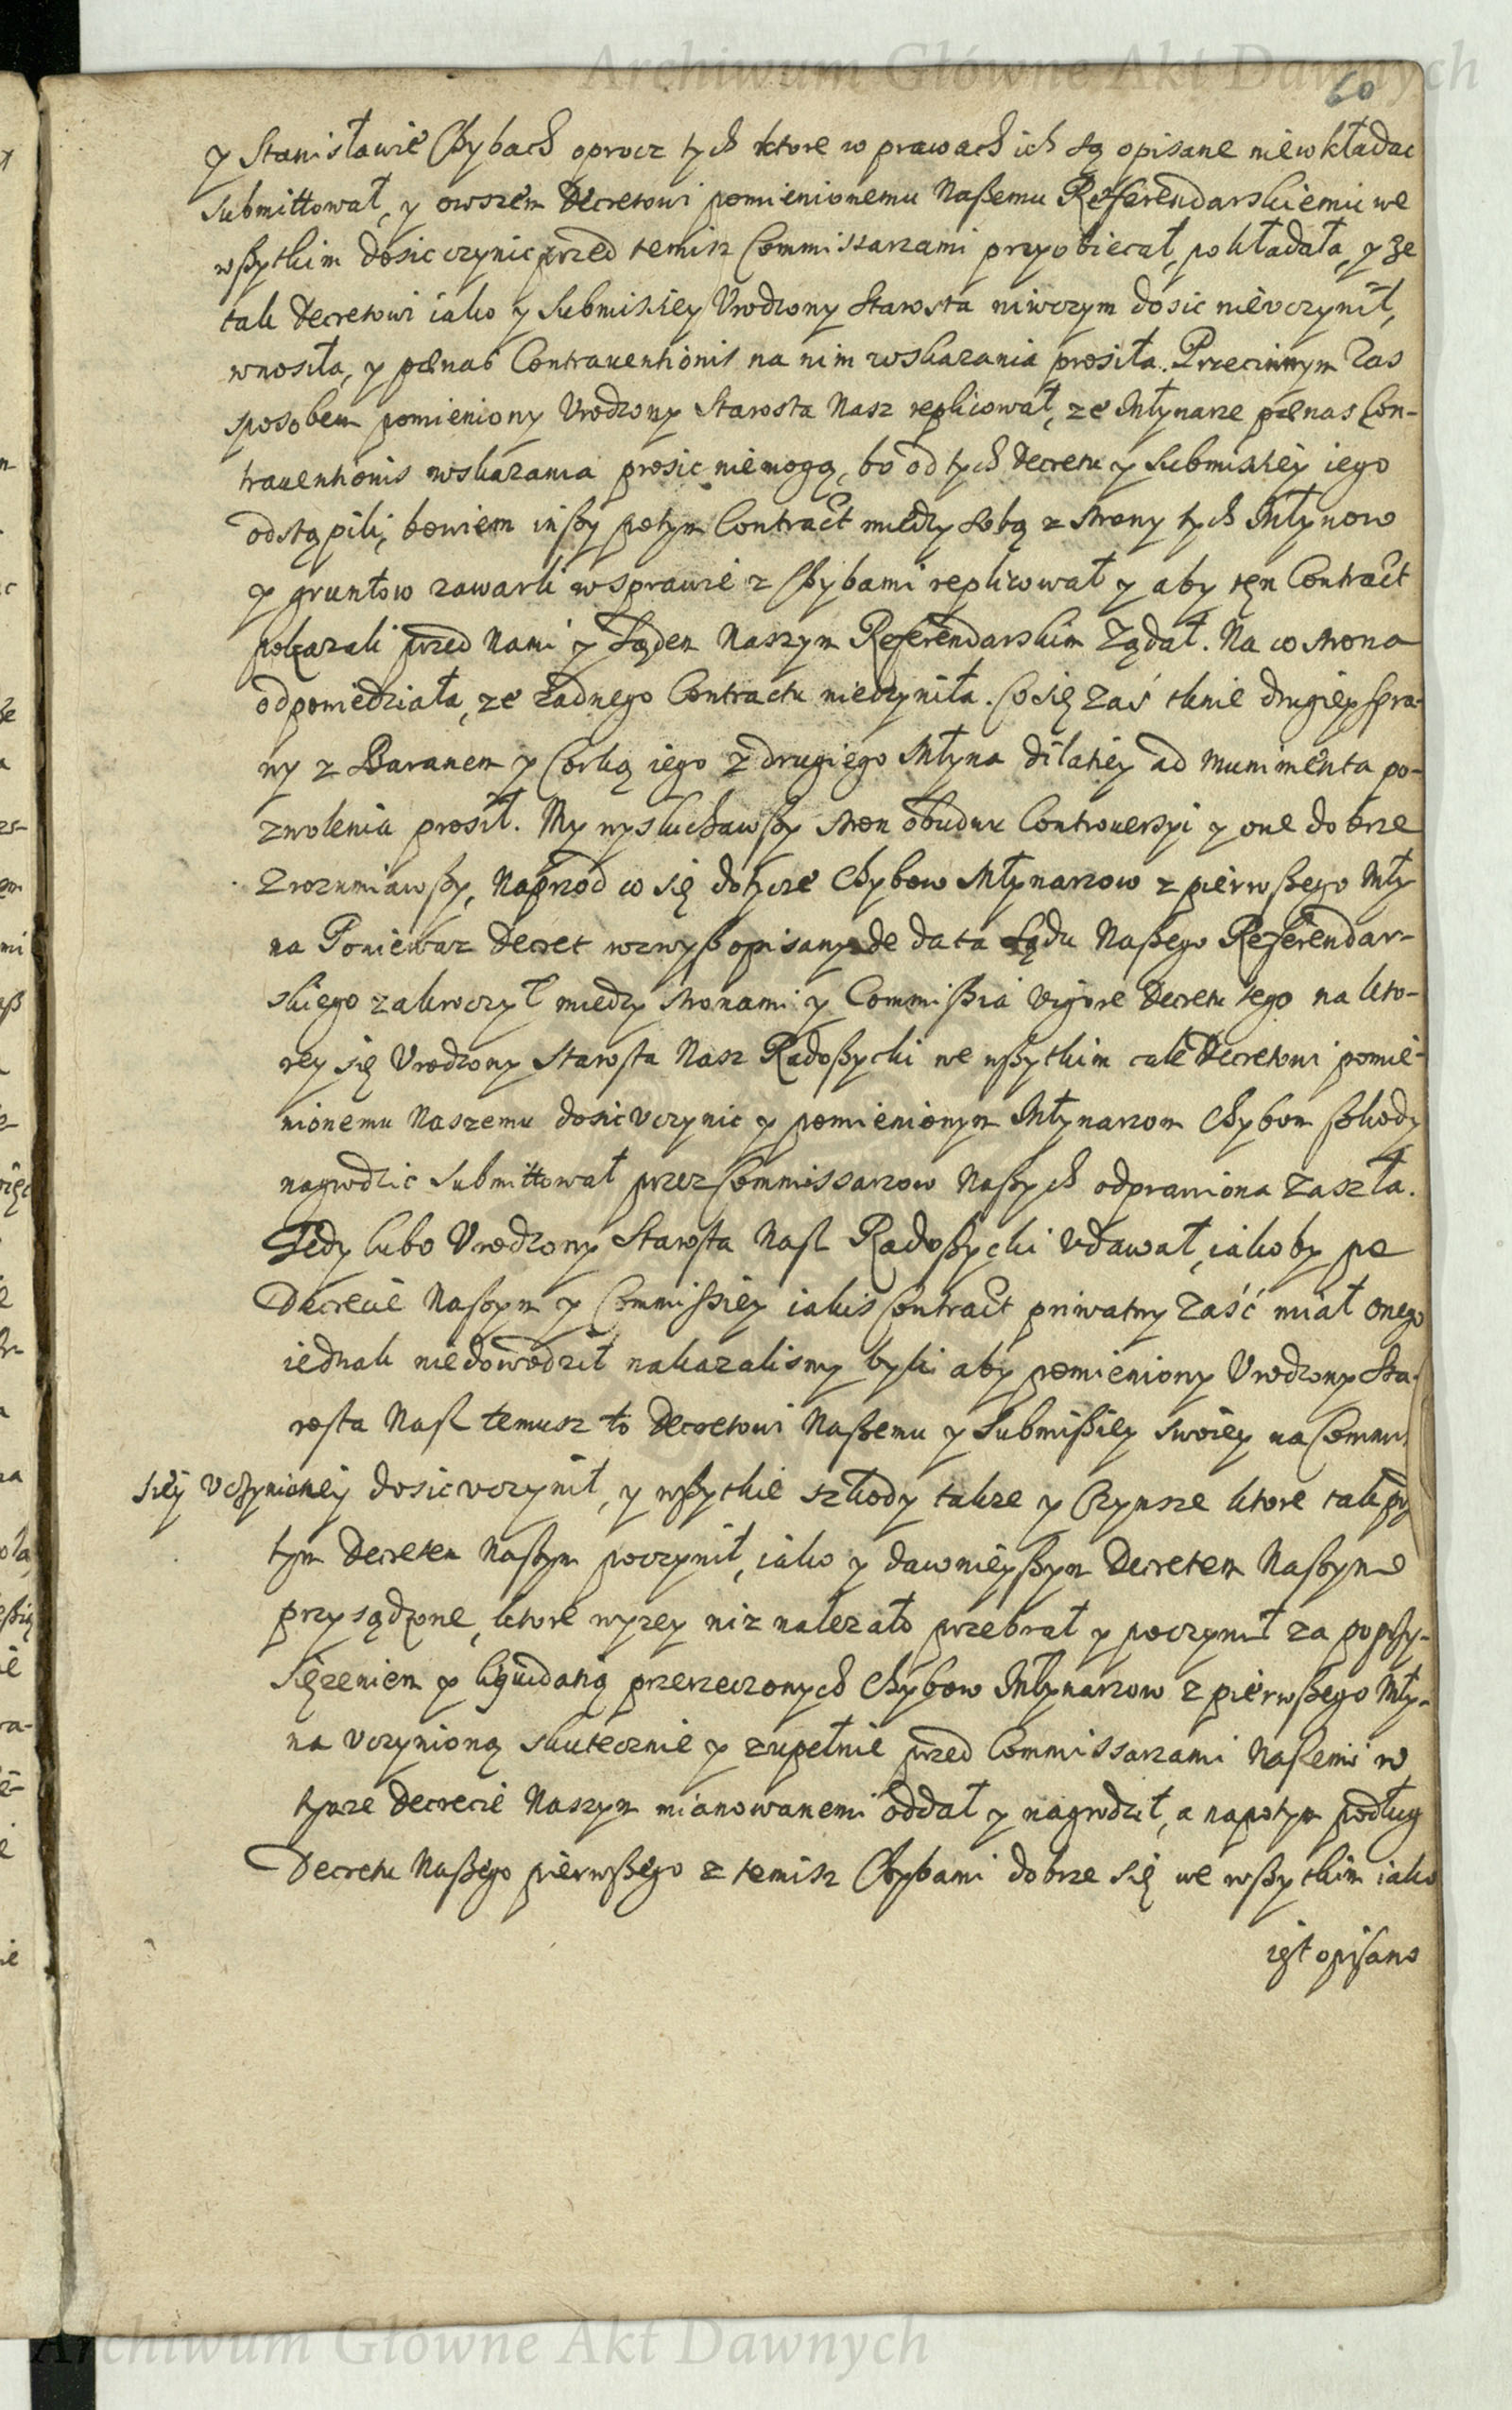 Archiwum Główne Akt Dawnych
60
y Stanisławie Chybach oprocz tych ktore w prawach ich są opisane niewkładac
submittował, y owszem Decretowi pomienionemu Naßemu Referendarskiemu we
wßytkim dosic czynic przed temisz Commissarzami przyobiecał, pokładała, y ze
tak Decretowi iako y Submissiey Vrodzony Starosta niwczym dosic nievczynił,
wnosiła, y pænas Contrauentionis na nim wskazania prosiła. Przeciwnym zas
sposobem pomieniony Vrodzony Starosta Nasz replicował, ze Młynarze pænas Con-
trauentionis wskazania prosic niemogą, bo od tych Decretu y Submissiey iego
odstąpili, bowiem inßy potym Contract miedzy sobą z strony tych Młynow
y gruntow zawarli w sprawie z Chybami replicował y aby ten Contract
pokazali przed Nami y Sądem Naszym Referendarskim Ządał. Na co strona
odpowiedziała, ze zadnego Contractu nieczyniła. Co się zaś tknie drugiey spra-
wy z Baranem y Corką iego z drugiego Młyna dilatiey ad munimenta po-
zwolenia prosił. My wysłuchawßy stron obudwu Controuersyi y one dobrze
zrozumiawßy, Naprzod co się dotycze Chybow Młynarzow z pierwßego Mły
na Poniewaz Decret wzwyß opisany de data Sądu Naßego Referendar-
skiego zakroczył miedzy stronami y Commißia vigore Decretu tego na kto-
rey się Vrodzony Starosta Nasz Radoßycki we wßytkim cale Decretowi pomie-
nionemu Naszemu dosic vczynic y pomienionym Młynarzom Chybom ßkody
nagrodzic submittował przez Commissarzow Naßych odprawiona zaszła.
Tedy lubo Vrodzony Starosta Naß Radoßycki vdawał, iakoby po
Decrecie Naßym y Commißiey iakis Contract priwatny zaść miał onego
iednak niedowodził nakazalismy byli aby pomieniony Vrodzony Sta-
rosta Naß temusz to Decretowi Naßemu y Submißiey swoiey na Commis
siey vczynioney dosic vczynił, y wßytkie szkody takze y Czynsze ktore tak przy
tym Decretem Naßym poczynił, iako y dawnieyßym Decretem Naßym
przysądzone, ktore wyzey niz nalezało przebrał y poczynił za poprzy-
siężeniem y liquidatią przerzeczonych Chybow Młynarzow z pierwßego Mły-
na vczynioną skutecznie y zupełnie przed Commissarzami Naßemi w
tymze Decrecie Naszym mianowanemi oddał y nagrodził, a napotym podług
Decretu Naßego pierwßego z temisz Chybami dobrze się we wßytkim iako
iest opisano
Archiwum Główne Akt Dawnych